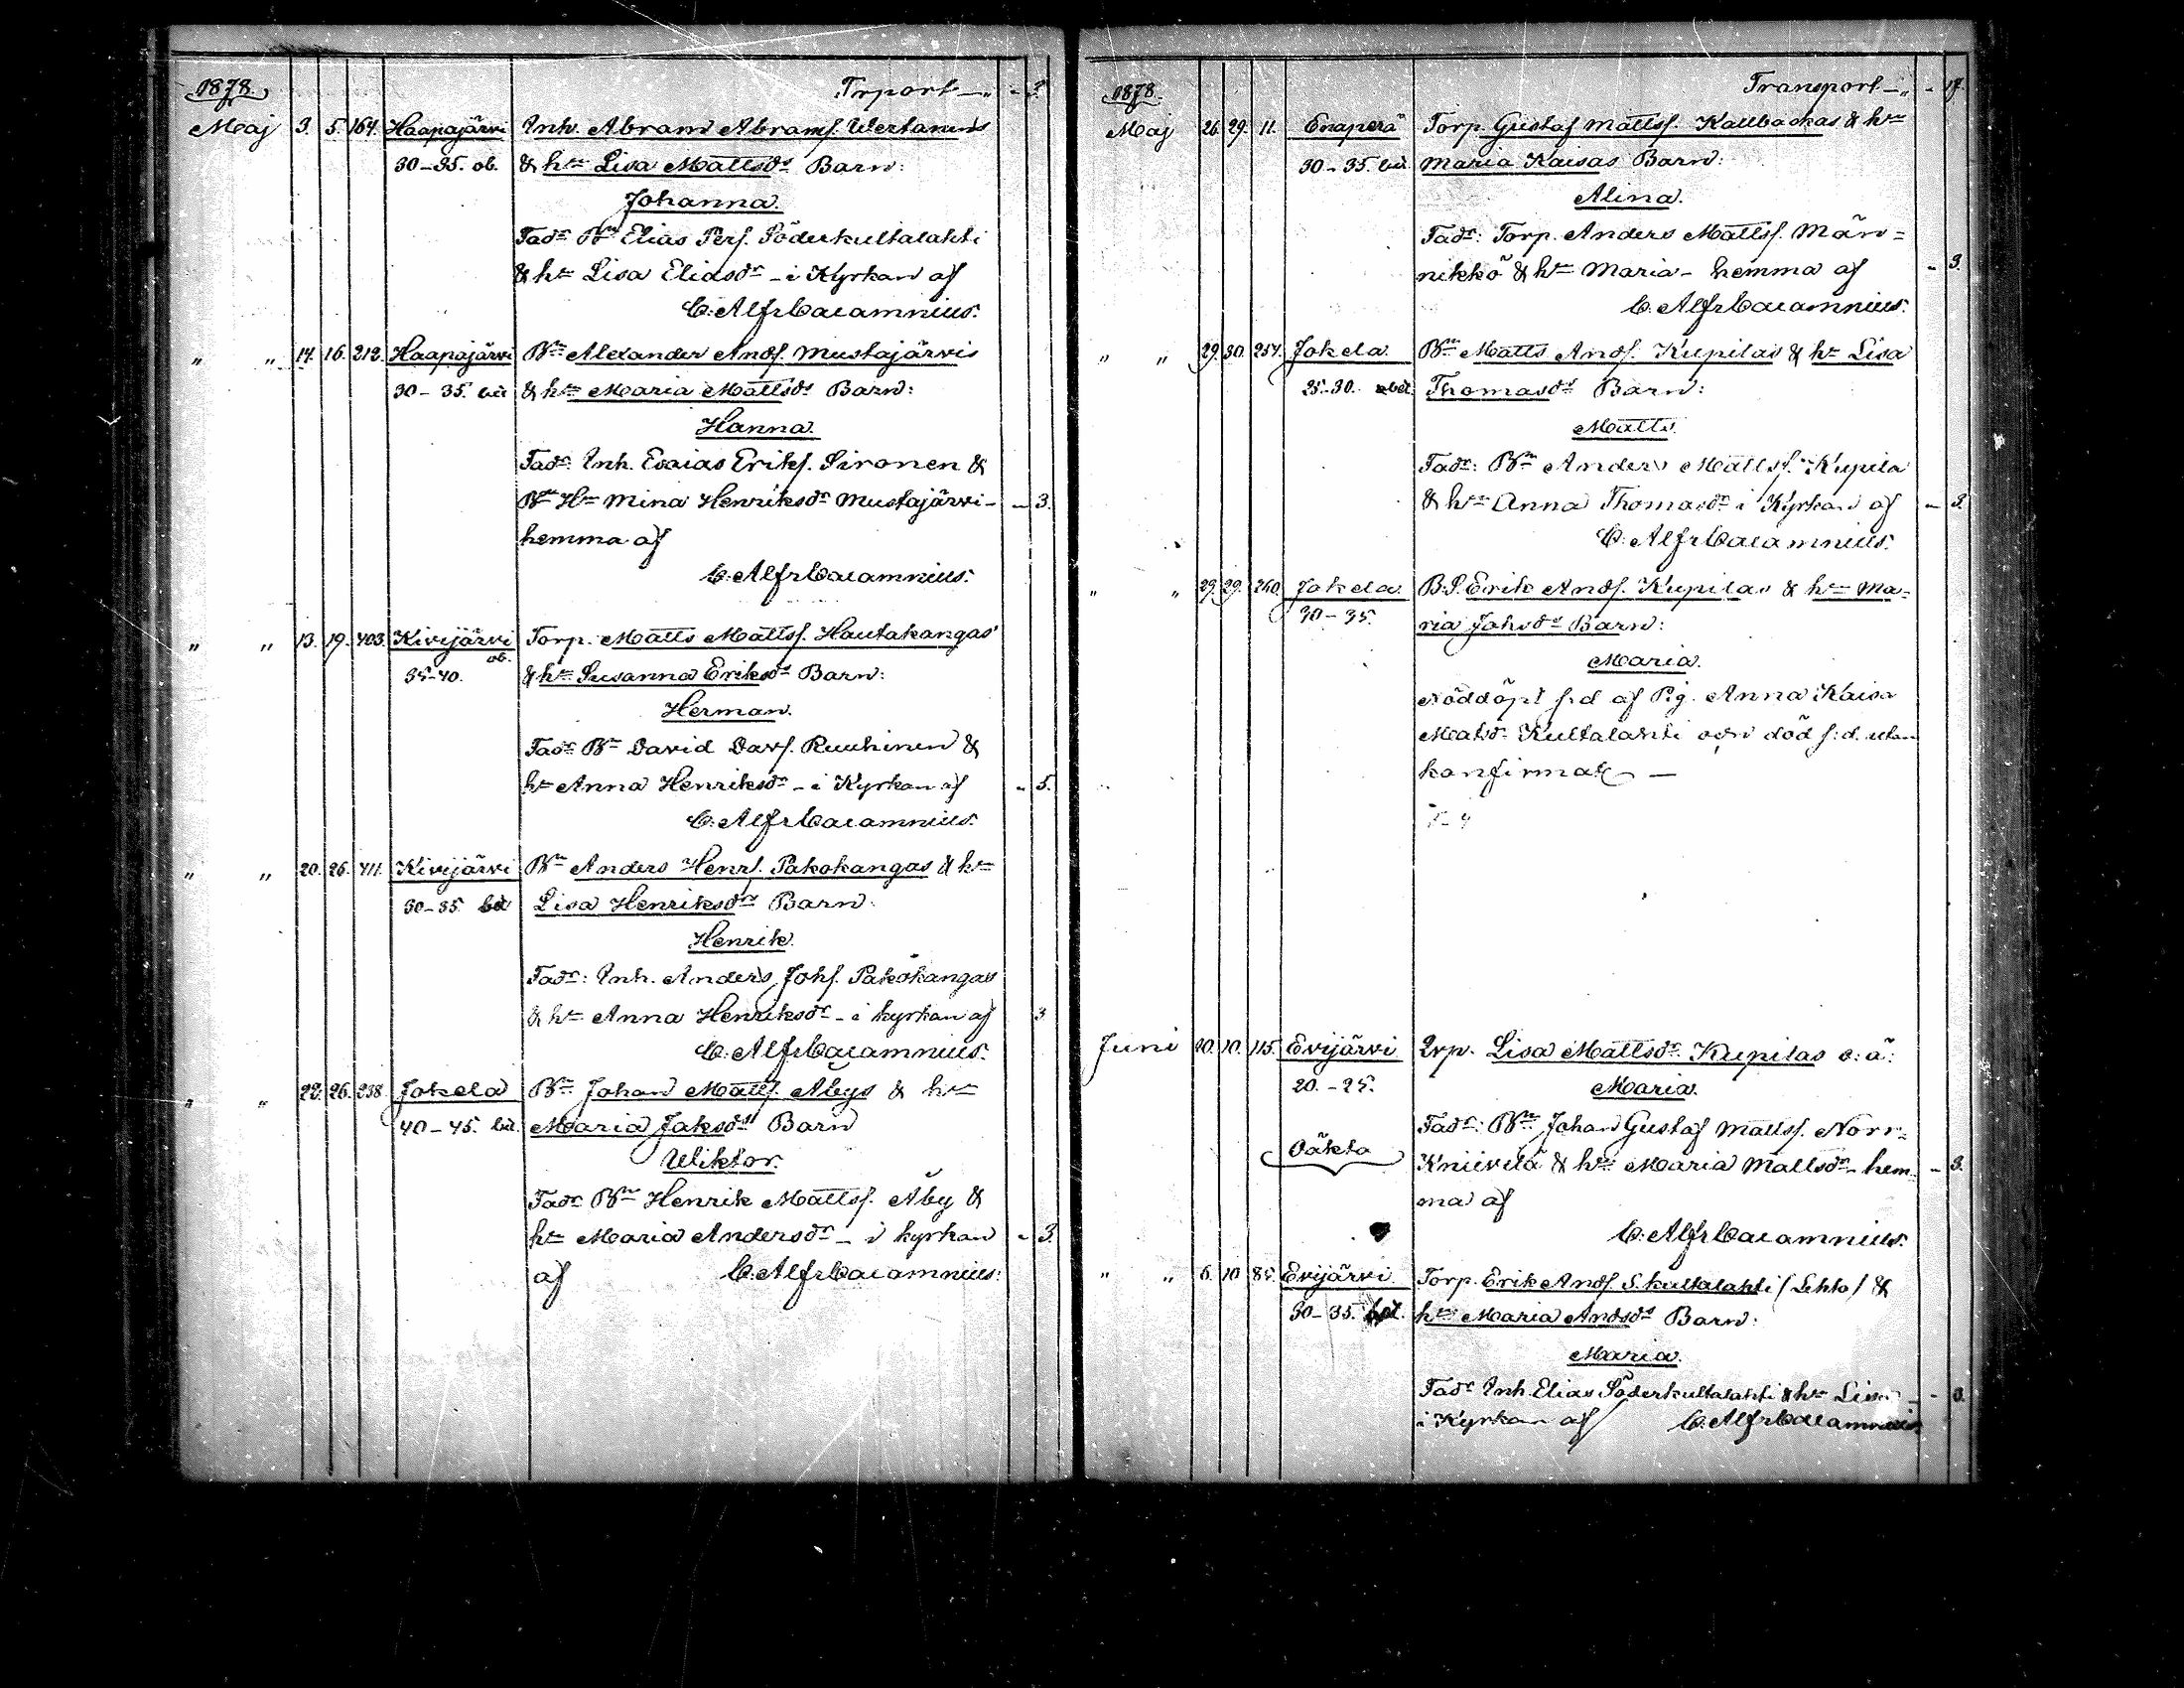 1878. Trport —„ - 3.
Maj 3. 5. 164. Haapajärvi Inh. Abram Abramss. Wertanens
30-35. ob. & hu Lisa Mattsdr Barn:
Johanna.
Faddr Bn Elias Perss. Söderkultalahti
& hu Lisa Eliasdr - i Kyrkan af
C. Alfr Cajamnius.
„ „ 14. 16. 212. Haapajärvi Bn Alexander Andss. Mustajärvis
30-35. bel & hu Maria Mattsdr Barn:
Hanna.
Faddr: Inh. Esaias Erikss. Sironen &
Bn Hu Mina Henriksdr Mustajärvi - - 3.
hemma af
C. Alfr Cajamnius.
„ „ 13. 19. 403. Kivijärvi Torp. Matts Mattss. Hautakangas
35-40. ob. & hu Susanna Eriksdr Barn:
Herman.
Faddr Bn David Davss. Ruuhinen &
hu Anna Henriksdr - i Kyrkan af - 5.
C. Alfr Cajamnius.
„ „ 20. 26. 411. Kivijärvi Bn Anders Henrs. Pakokangas & hu
30-35. bel Lisa Henriksdrs Barn:
Henrik.
Faddr: Inh. Anders Johss. Pakokangas
& hu Anna Henriksdr - i kyrkan af 3
C. Alfr Cajamnius.
„ „ 22. 26. 238. Jokela Bn Johan Mattss. Åbys & hu
40-45. bel. Maria Jaksdr Barn
Wiktor.
Faddr Bn Henrik Mattss. Åby &
hu Maria Andersdr - i kyrkan - 3.
af C. Alfr Cajamnius.
1878. Transport —„ - 17.
Maj 26. 29. 11. Enaperä Torp. Gustaf Mattss. Kallbackas & hu
30-35. bel. Maria Kaisas Barn:
Alina.
Faddr: Torp. Anders Mattss. Män=
nikkö & hu Maria - hemma af - 3.
C. Alfr Cajamnius.
„ „ 29. 30. 257. Jokela Bn Matts Andss. Kupilas & hu Lisa
25-30. Thomasdr Barn:
Matts.
Faddr: Bn Anders Mattss. Kupila
& hu Anna Thomasdr i Kyrkan af - 3.
C. Alfr Cajamnius.
„ „ 29. 29. 260. Jokela. B.S. Erik Andss. Kupilas & hu Ma=
30-35. ria Johsdr Barn:
Maria.
Nöddöpt s.d af Pig. Anna Kaisa
Matsdr Kultalahti och död s:d. utan
konfirmat —
Juni 10. 10. 115. Evijärvi Qvp. Lisa Mattsdr Kupilas o: ä:
20.-25. Maria.
Faddr: Bn Johan Gustaf Mattss. Norr=
Oäkta Kniivilä & hu Maria Mattsdr - hem= - 3.
ma af
C. Alfr Cajamnius.
„ „ 6. 10 85. Evijärvi. Torp. Erik Andss. S.kultalahti / Lehto / &
30-35. bel. hu Maria Andsdr Barn:
Maria.
Faddr Inh. Elias Söderkultalahti & hu Lisa - - 3.
i Kyrkan af C. Alfr Cajamnius